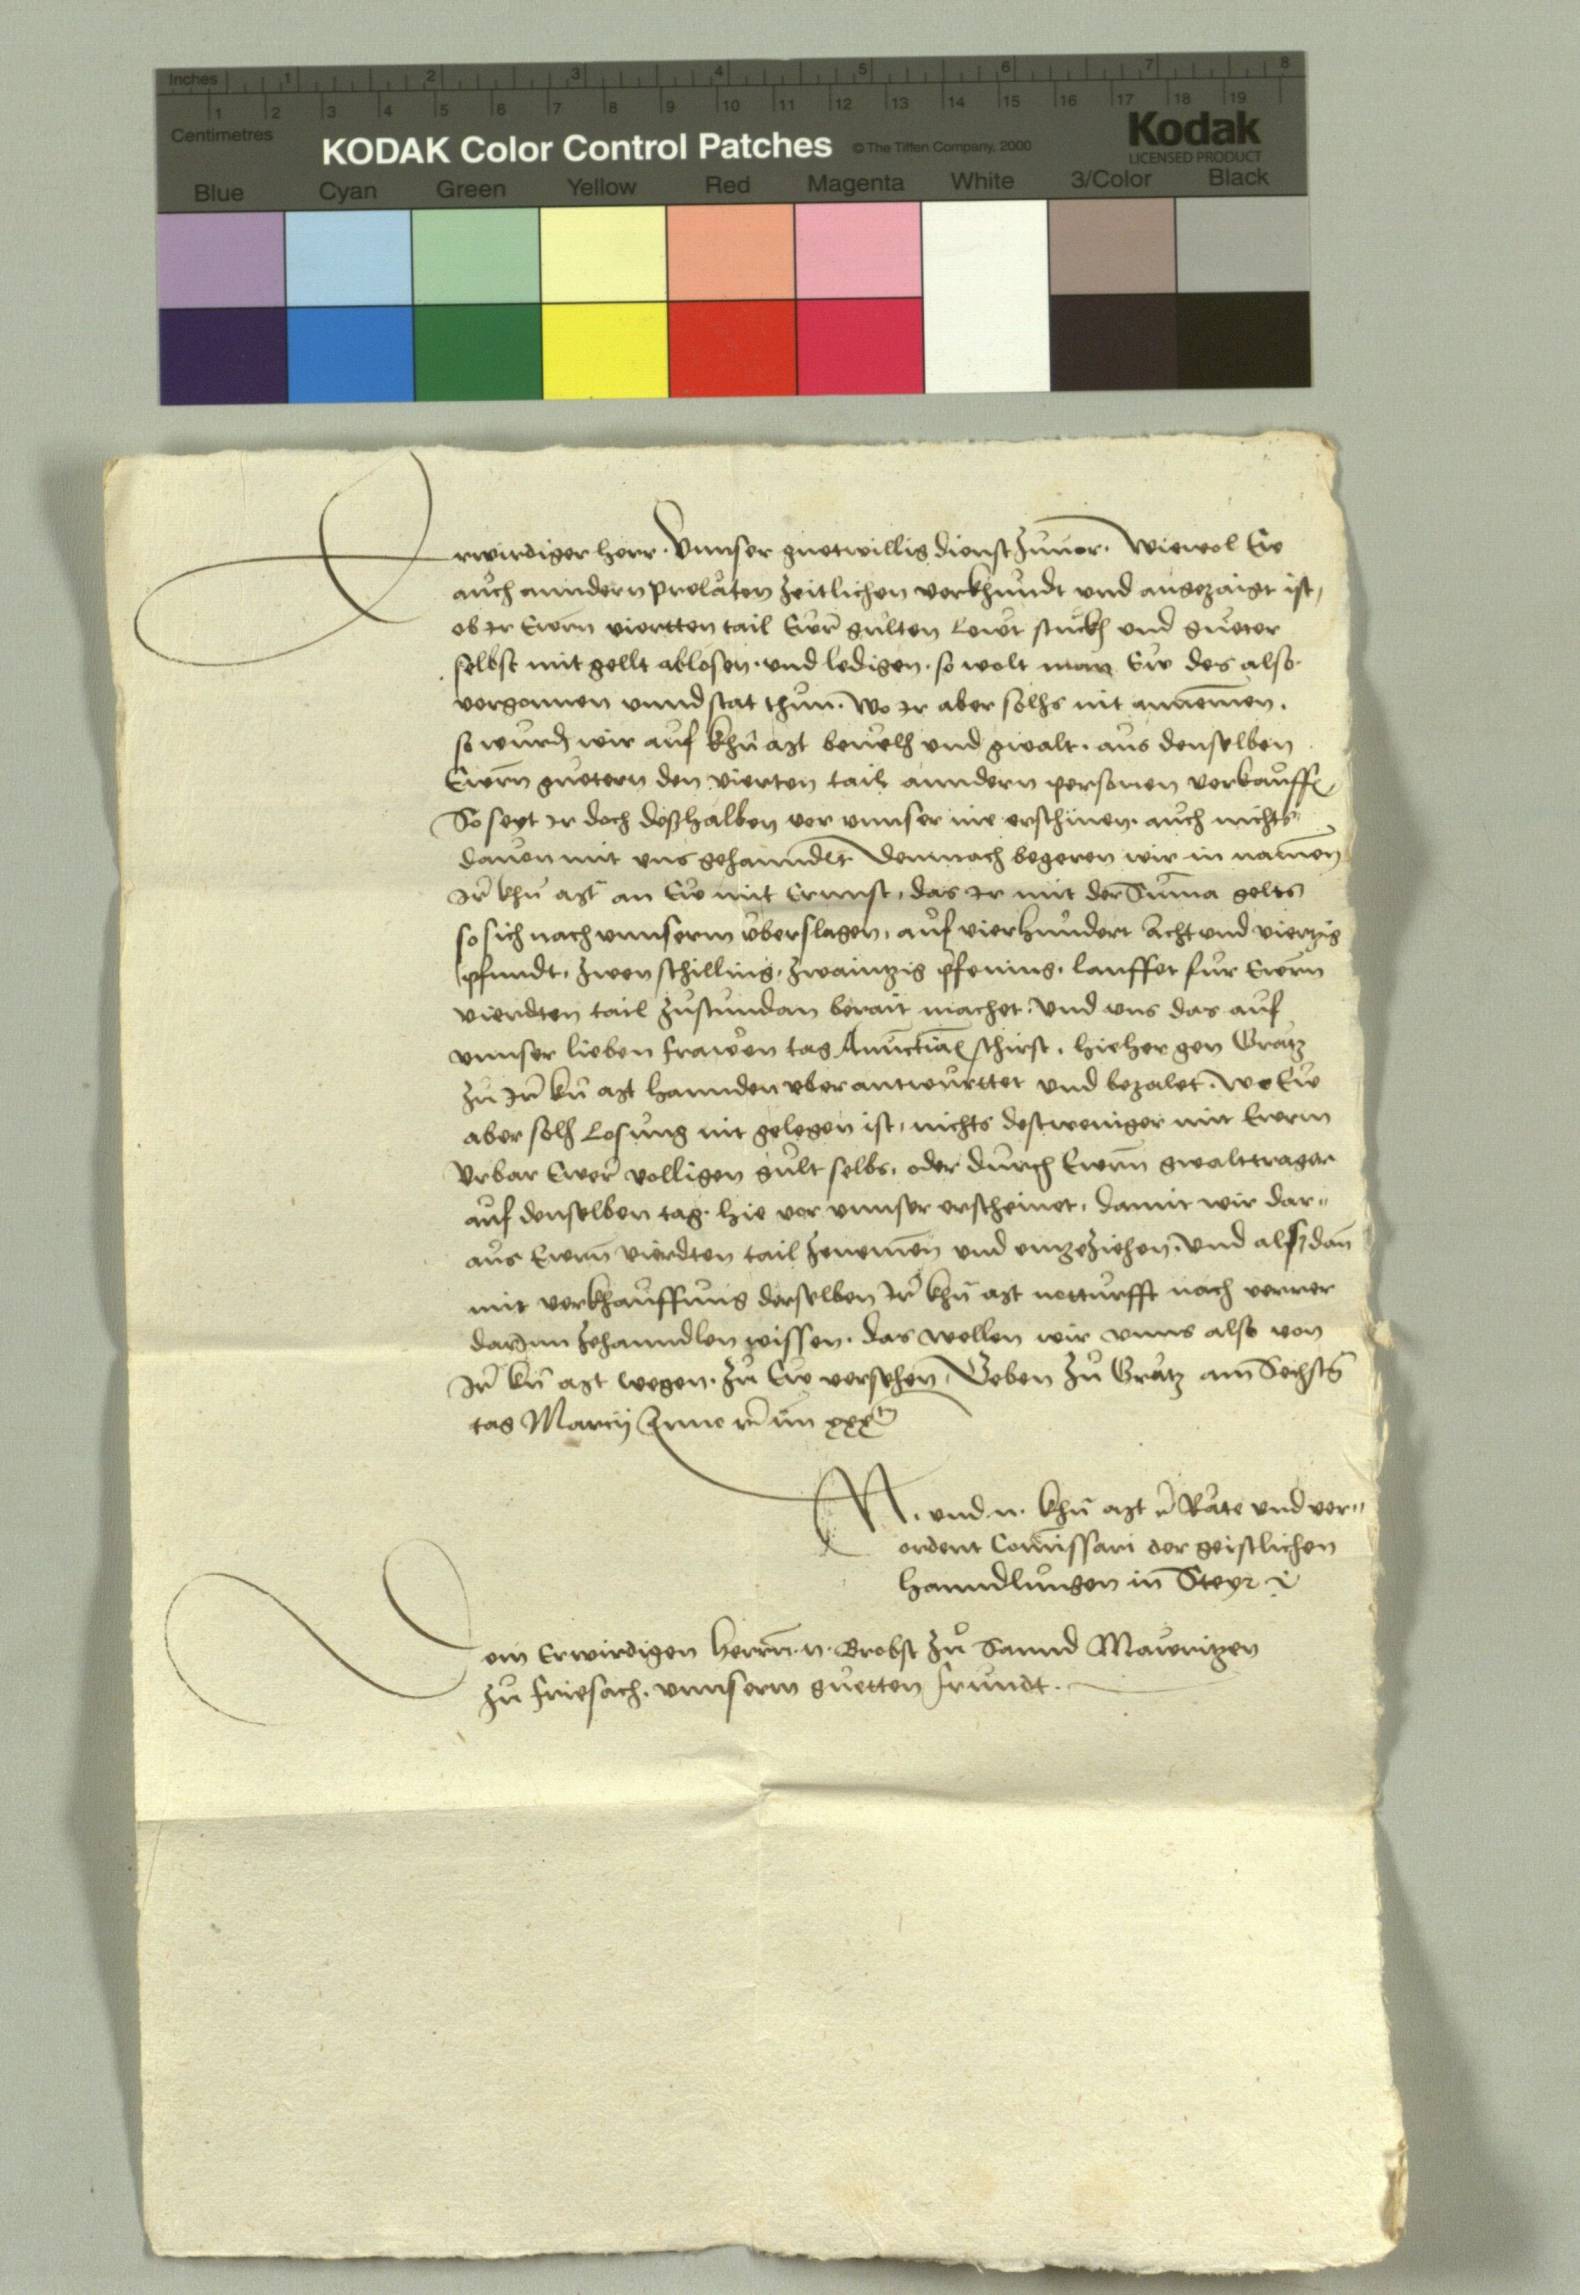 Inches 1 2 3 4 5 6 7 8
1 2 3 4 5 6 7 8 9 10 11 12 13 14 15 16 17 18 19
Centimetres
KODAK Color Control Patches © The Tiffen Company, 2000 Kodak
LICENSED PRODUCT
Blue Cyan Green Yellow Red Magenta White 3/Color Black
Erwirdiger herr. Unnser guetwillig dienst zuuor. Wiewol Ew
auch anndern prelaten zeitlichen verkhundt und angezaigt ist,
ob Ir Ewrn viertten tail Ewr gulten Lewt stuckh und gueter
selbst mit gellt ablosen. und ledigen. so wolt man Ew des also
vergonnen unnd stat thun. Wo Ir aber solhs nit annemen.
so wurdn wir auf khu mt beuelh und gwalt. aus denselben
Ewrn guetern den vierten tail anndern personen verkauffn
So seyt Ir doch desshalben vor unnser nie erschinen. auch nichts
dauon mit uns gehanndlt. Demnach begeren wir in namen
Ir khu mt an Ew mit Ernnst, das Ir mit der Suma gelts
so sich nach unnserm uberslagen, auf vierhundert Acht und viertzig
pfundt, zwen schilling, zwaintzig pfening, lauffet fur Ewrn
vierdten tail zustundan berait machet. Und uns das auf
unnser lieben frawen tag Anuctiat schirst, hieher gen Gratz
zu Ir ku mt hannden uberantwurttet und bezalet. Wo Ew
aber solh Losung nit gelegen ist, nichts destweniger mit Ewrm
Urbar Ewr volligen gult selbs, oder durch Ewrn gwalttrager
auf denselben tag. hie vor unnser erscheinet, damit wir dar=
aus Ewrn vierdten tail zenemen und einzeziehen. Und alsdan
mit verkhauffung derselben Ir khu mt notturfft nach verrer
darInn zehanndlen wissen. das wellen wir unns also von
Ir ku mt wegen. zu Ew versehen. Geben zu Gratz am Sechstn
tag Marcij Anno &c im xxxtn
N. und n. khu mt &c Räte und ver=
ordent Comissari der geistlichen
hanndlungen in Steyr &c
Dem Erwirdigen herrn. n. Brobst zu Sannd Mauritzen
zu friesach. unnserm guetten frundt.